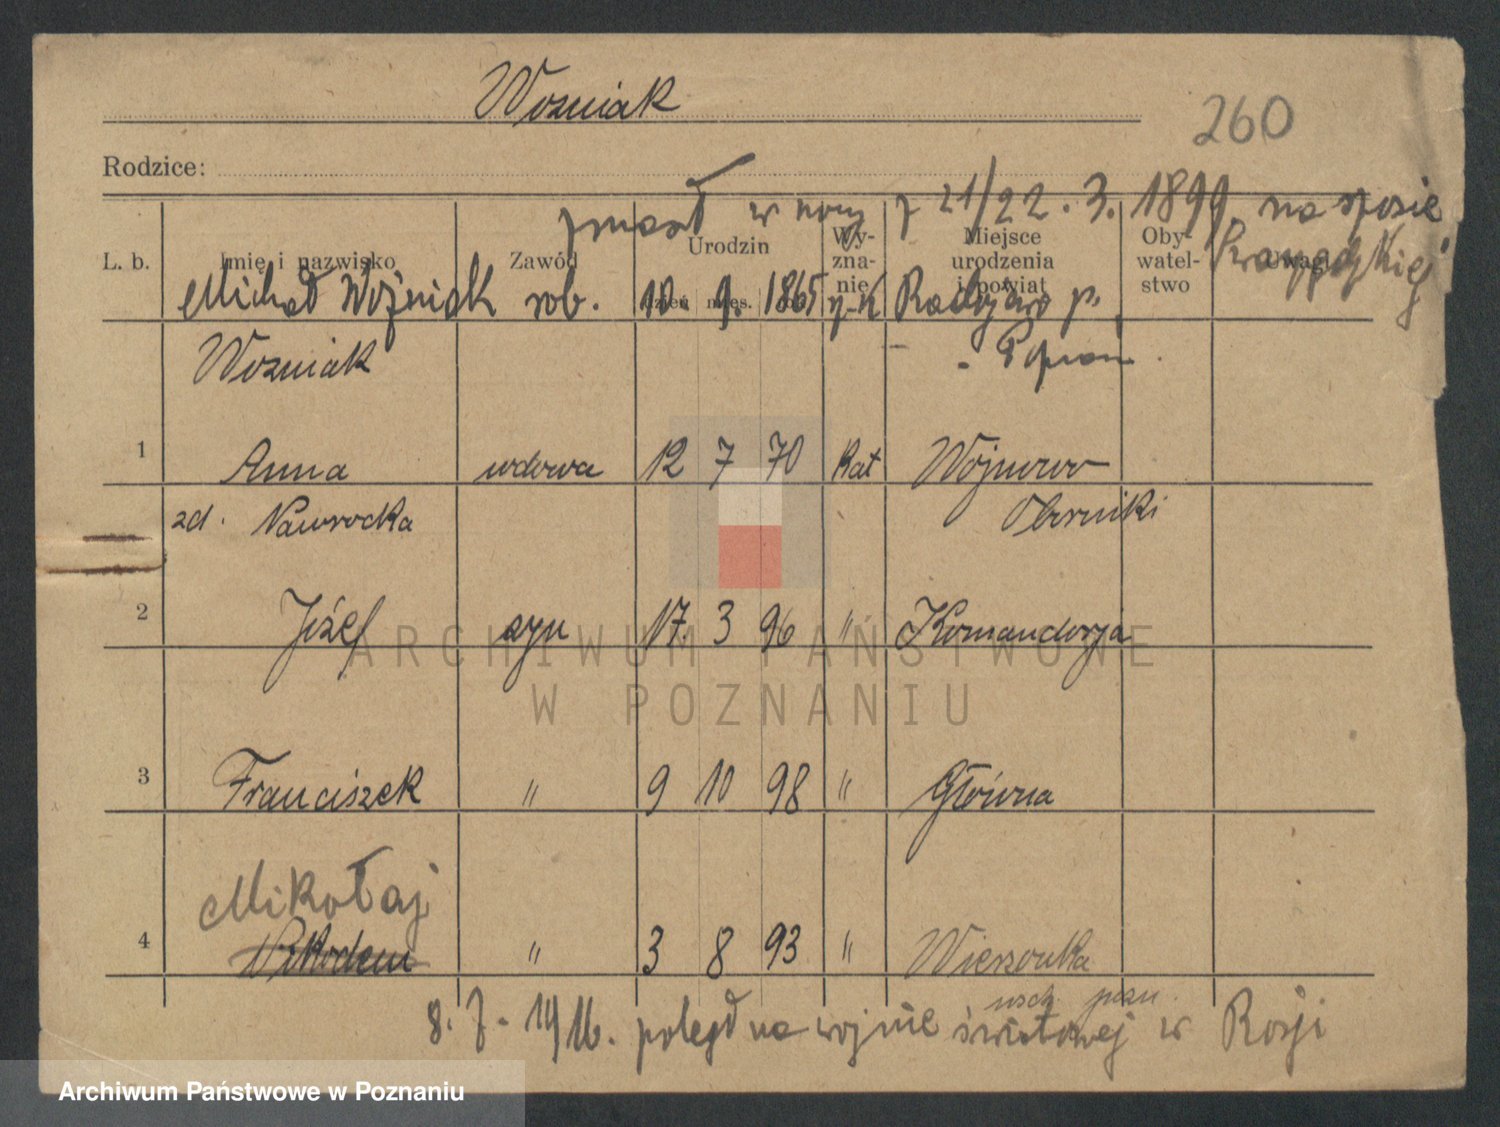 Wozniak
260
Rodzice:
zmarł w nocy z 21/22.3.1899 na szosie
L. b. Imię i nazwisko Zawód Urodzin dzień mies. rok Wy-zna-nie Miejsce urodzenia i powiat Oby-watel-stwo Uwagi
Michał Woźniak rob. 10. 9. 1865 r-k p.
Wozniak
1 Anna wdowa 12 7 70 Kat Wojnowo
zd. Nawrocka Oborniki
2 Józef syn 17. 3 96 " Komandorja
3 Franciszek " 9 10 98 " Główna
Mikołaj
4 Nikodem " 3 8 93 " Wierzonka
wsch. pozn.
8.7.1916. poległ na wojnie światowej w Rosji
ARCHIWUM PAŃSTWOWE
W POZNANIU
Archiwum Państwowe w Poznaniu